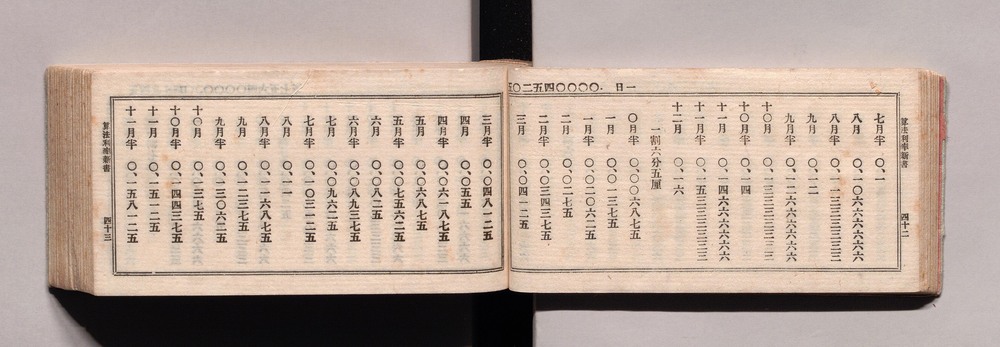 算法利率新書 四十二
一日 .〇〇〇〇四五二〇五
七月半 〇、一
八月 〇、一〇六六六六六六
八月半 〇、一一三三三三三三
九月 〇、一二
九月半 〇、一二六六六六六六
十〇月 〇、一三三三三三三三
十〇月半 〇、一四
十一月 〇、一四六六六六六六
十一月半 〇、一五三三三三三三
十二月 〇、一六
一割六分五厘
〇月半 〇、〇〇六八七五
一月 〇、〇一三七五
一月半 〇、〇二〇六二五
二月 〇、〇二七五
二月半 〇、〇三四三七五
三月 〇、〇四一二五
三月半 〇、〇四八一二五
四月 〇、〇五五
四月半 〇、〇六一八七五
五月 〇、〇六八七五
五月半 〇、〇七五六二五
六月 〇、〇八二五
六月半 〇、〇八九三七五
七月 〇、〇九六二五
七月半 〇、一〇三一二五
八月 〇、一一
八月半 〇、一一六八七五
九月 〇、一二三七五
九月半 〇、一三〇六二五
十〇月 〇、一三七五
十〇月半 〇、一四四三七五
十一月 〇、一五一二五
十一月半 〇、一五八一二五
算法利率新書 四十三